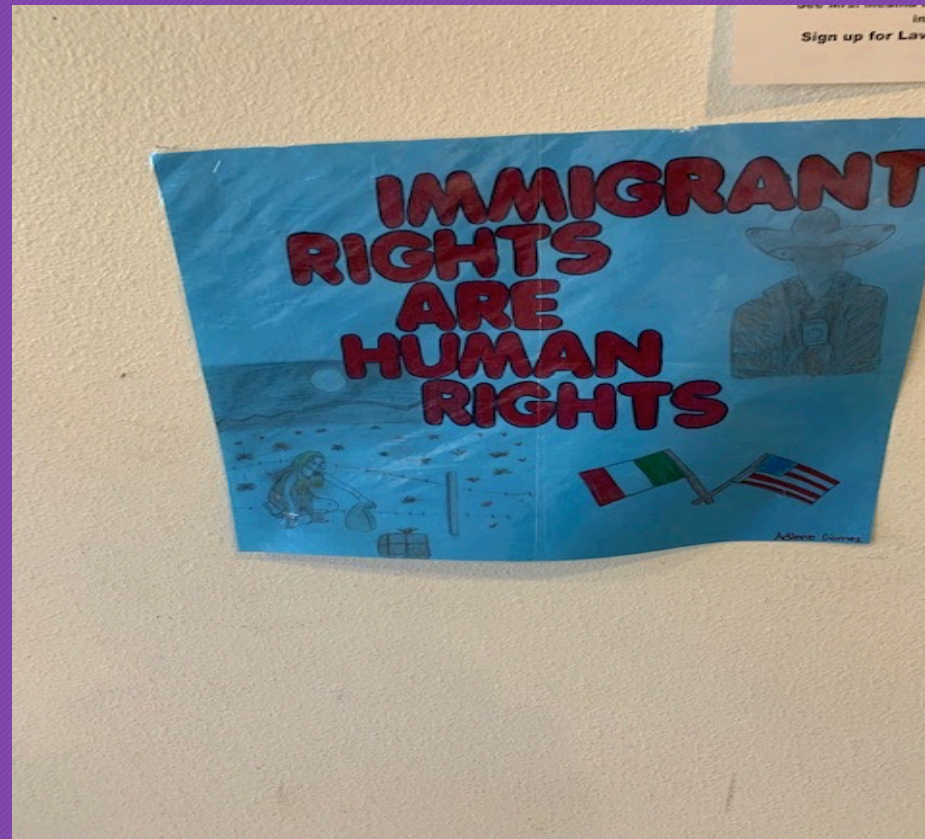 See Mrs.
in
Sign up for Law
IMMIGRANT
RIGHTS
ARE
HUMAN
RIGHTS
Adilene Gomez